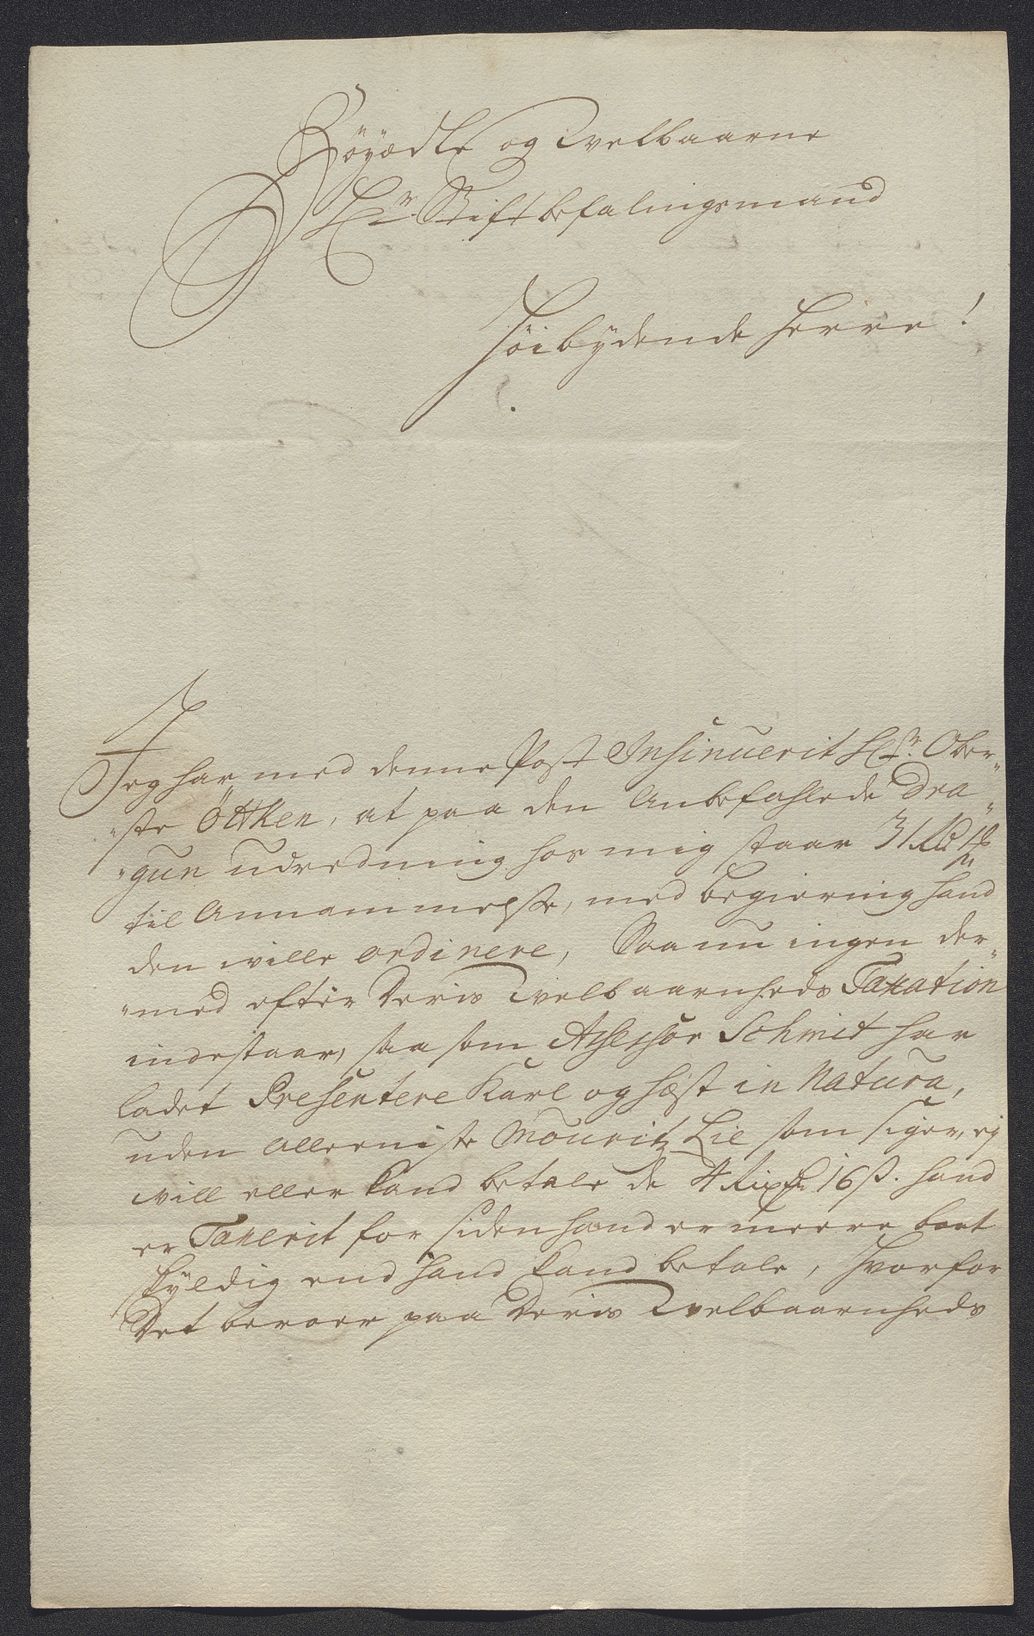 Höyædle og Welbaarne
Hr. Stiftbefalingsmand
Höibydende Herre!
Jeg har med denne Post Insinuerit Hr. Ober-
"ste Ötken, at paa den Anbefahlede Dra-
"gun udredning hos mig staar 31 Rd
til Annammelse, med begiering hand
den wille ordinere, Saa nu ingen der-
"med efter Deris Welbaarnheds Taxation
indestaar, saa som Assessor Schmit har
ladet Presentere Karl og Hest in Natura,
uden alleeniste Mouritz Lie som siger, ej
will eller kand betale de 4 Rixd 16 s. hand
er Taxerit for siden hand er meere bort
skyldig end hand kand betale, hvorfor
Det beroer paa Deris Welbaarnheds